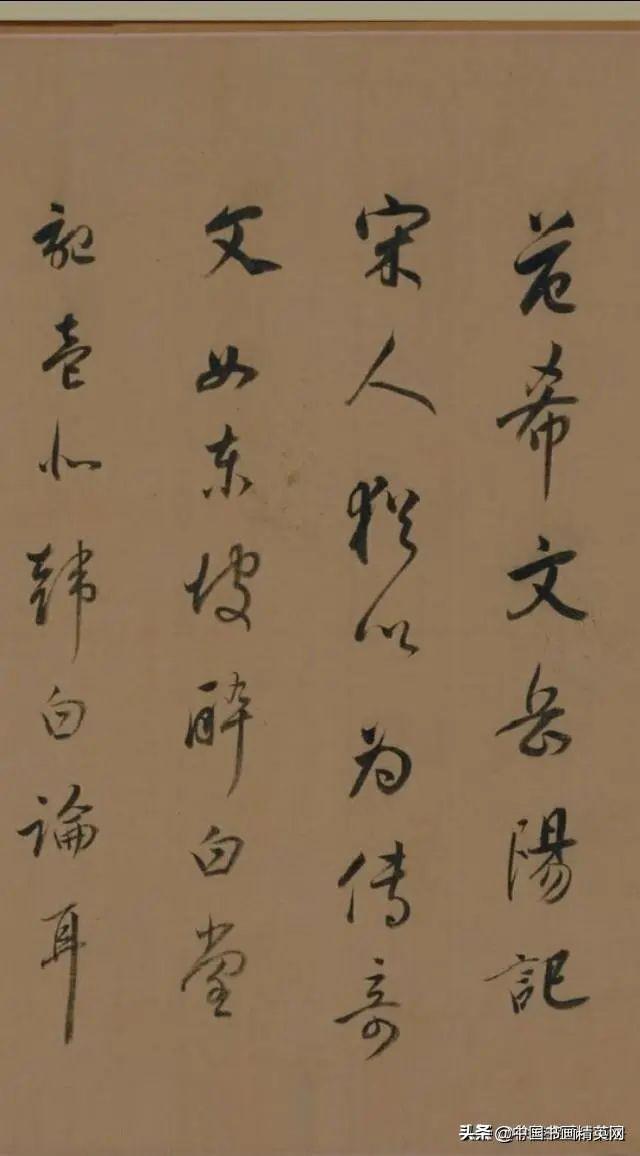 范希文岳陽記
宋人猶以為傳奇
文如東坡醉白堂
記壹似韓白論耳
头条 @中国书画精英网